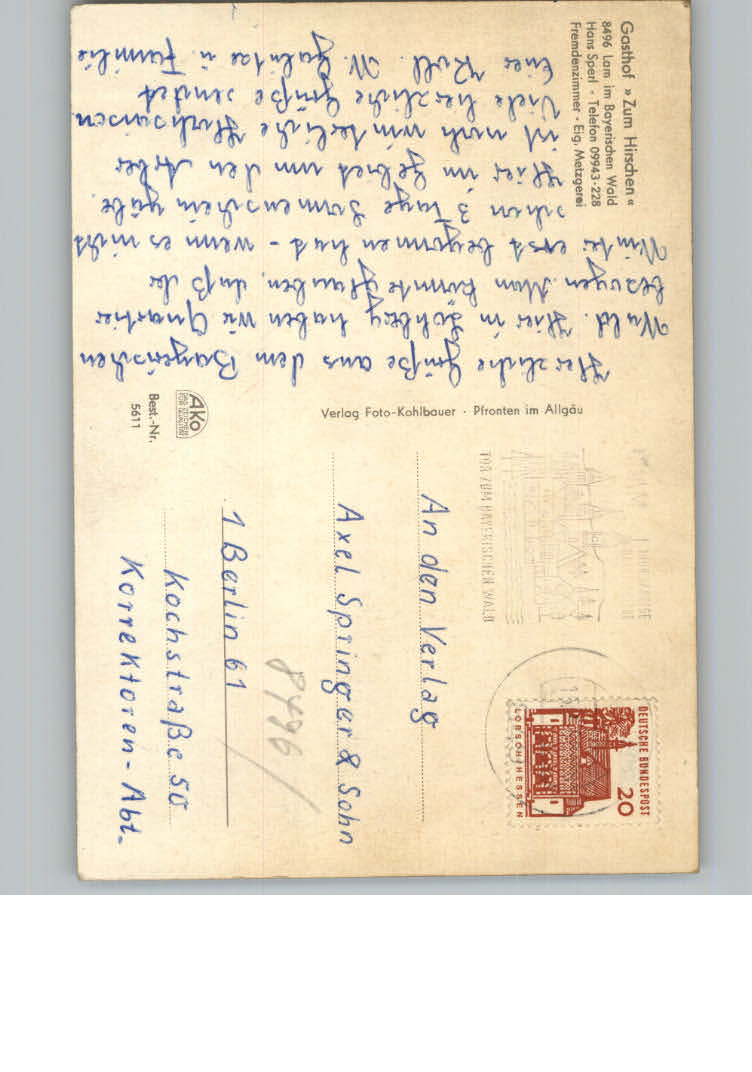 Gasthof » Zum Hirschen «
8496 Lam im Bayerischen Wald
Hans Sperl · Telefon 09943-228
Fremdenzimmer · Eig. Metzgerei
Herzliche Grüße aus dem Bayerischen
Wald. Hier in haben wir Quartier
bezogen. Man könnte glauben, daß der
Winter erst begonnen hat - wenn es nicht
schon 3 Tage Sonnenschein gäbe.
Hier im Gebiet um den Arber
ist noch winterliche Hochsaison.
Viele herzliche Grüße sendet
Euer Koll. W. u. Familie
Verlag Foto-Kohlbauer · Pfronten im Allgäu
AKo
DAS ZEICHEN
FÜR QUALITÄT
Best.-Nr.
5611
TOR ZUM BAYERISCHEN WALD
DEUTSCHE BUNDESPOST
20
LORSCH/HESSEN
An den Verlag
Axel Springer & Sohn
8496
1 Berlin 61
Kochstraße 50
Korrektoren-Abt.